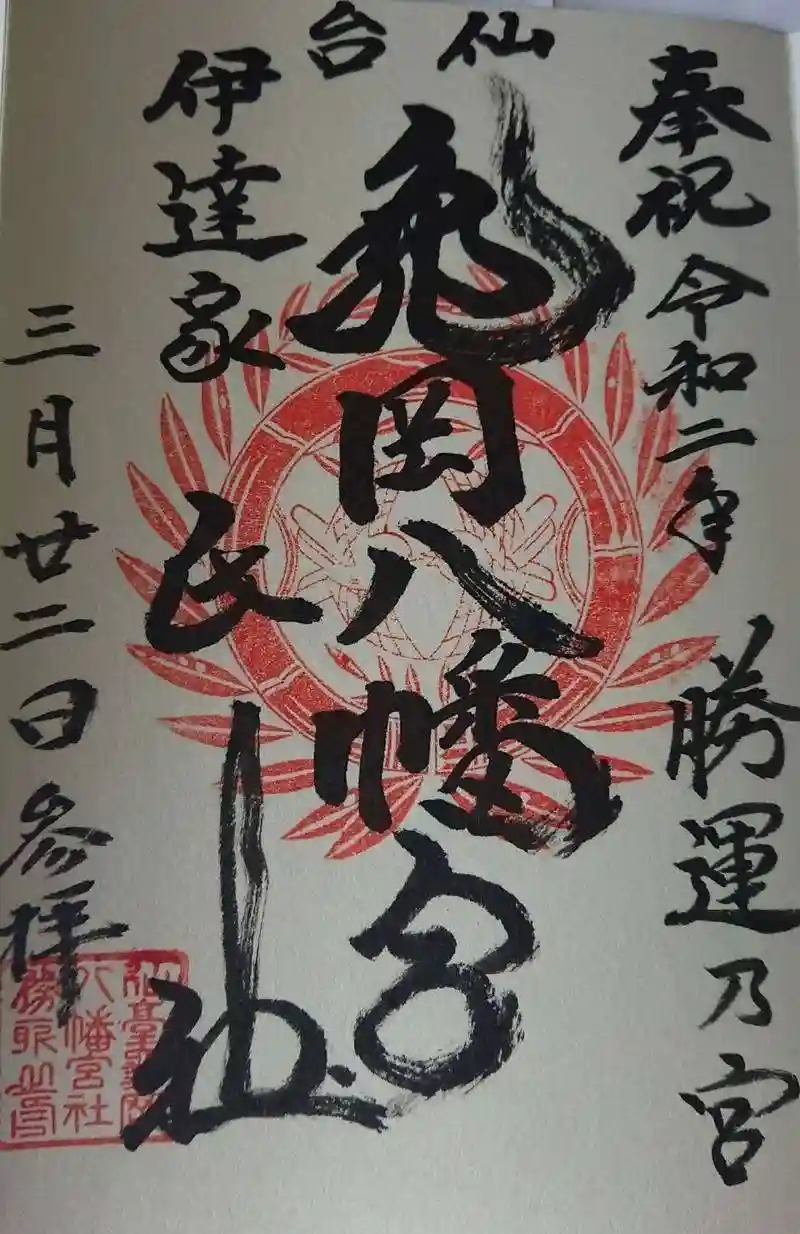 奉祝 令和二年
勝運乃宮
仙台
亀岡八幡宮
伊達家
氏神
三月廿二日参拝
仙臺亀岡
八幡宮社
務所之印